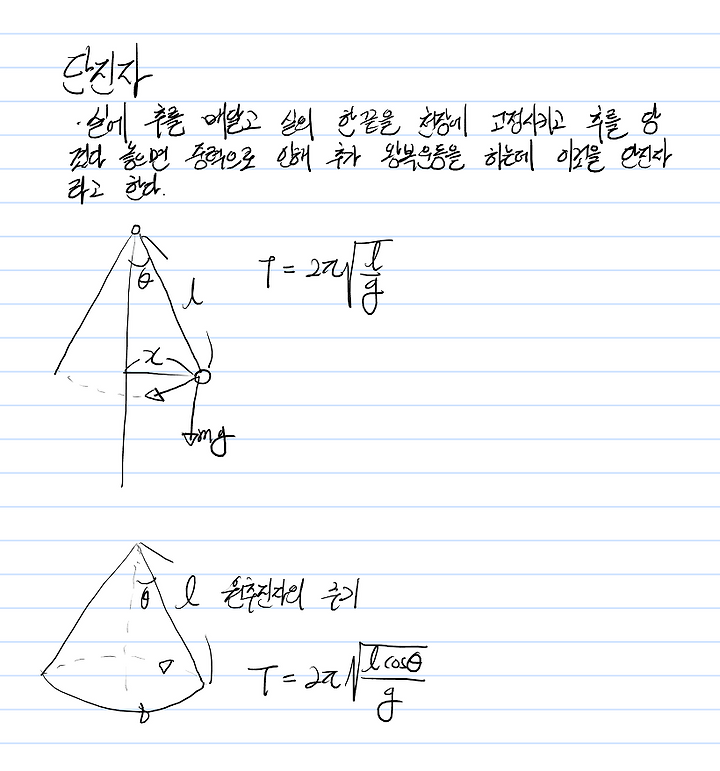 단진자
· 실에 추를 매달고 실의 한끝을 천장에 고정시키고 추를 당
겼다 놓으면 중력으로 인해 추가 왕복운동을 하는데 이것을 단진자
라고 한다.
θ
l
T = 2π√(l/g)
x
mg
θ
l
원추진자의 주기
T = 2π√(l cosθ/g)